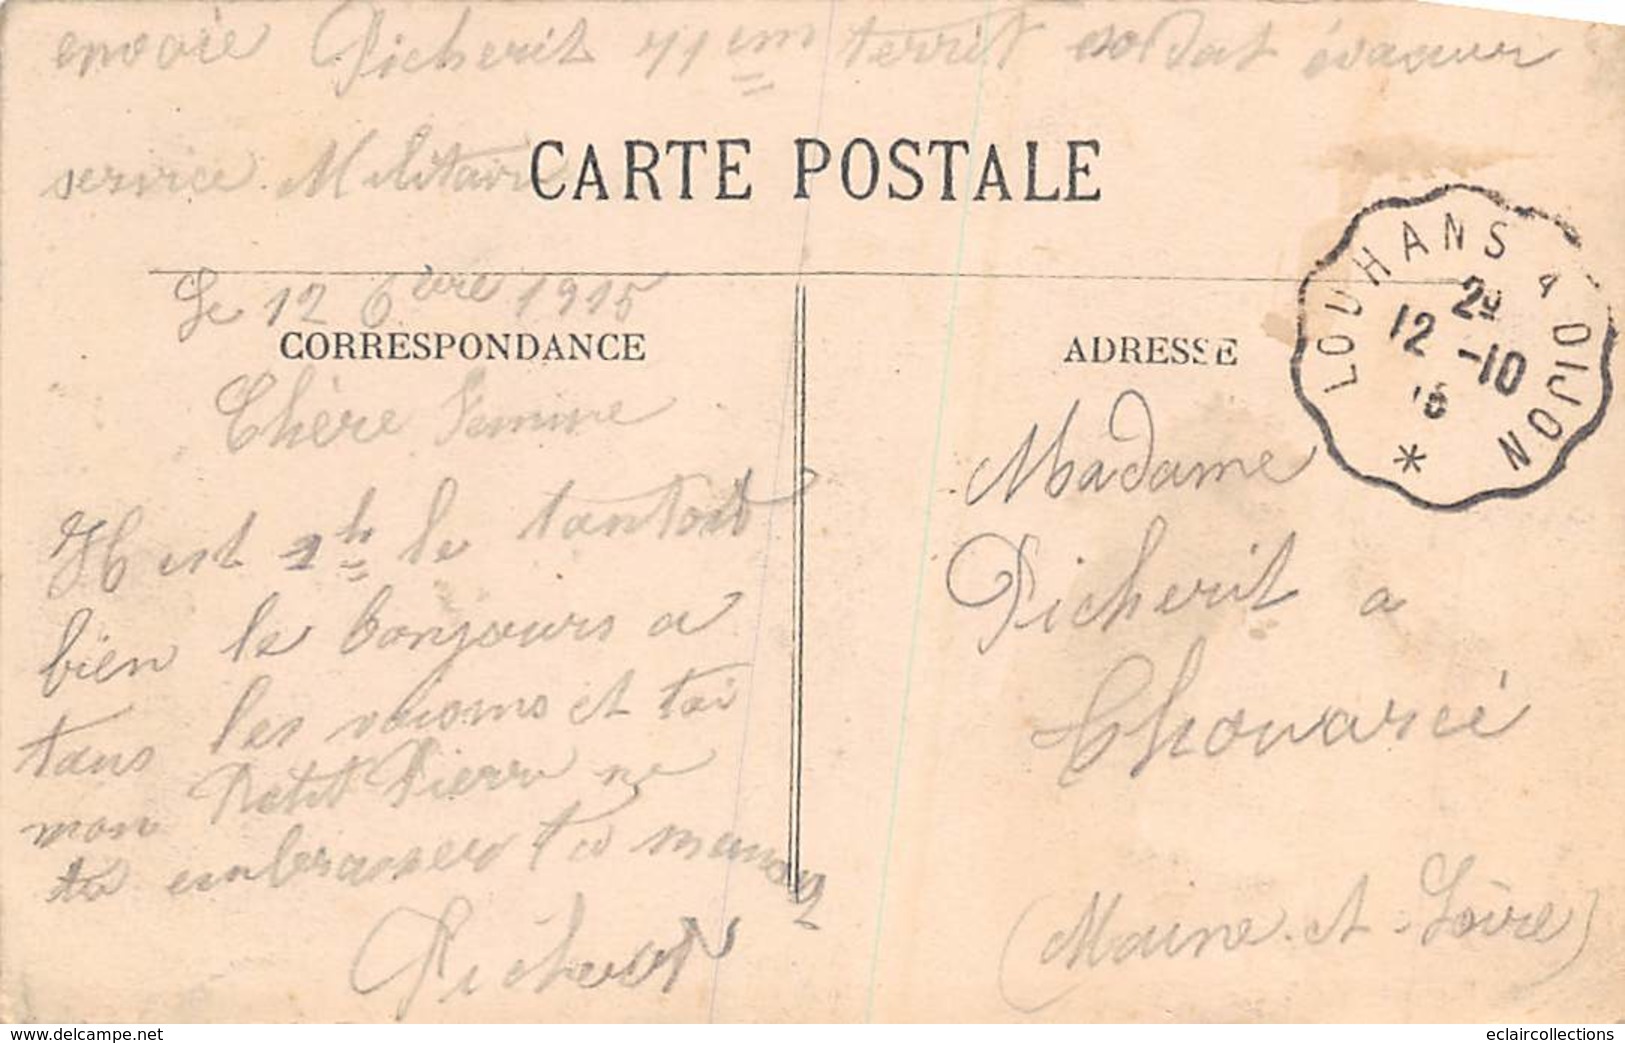 envoie Picherit 71em territ soldat évacuer
service Militaire
CARTE POSTALE
Le 12 6bre 1915
CORRESPONDANCE
Chère Femme
Il est 2h le tantot
bien le bonjours a
tans les voisons et toi
mon Petit Pierre ne
te embrasser ta maman
Picherit
ADRESSE
Madame
Picherit a
Chouarcé
(Maine-et-Loire)
LOUHANS A DIJON
29
12 -10
15
*
www.delcampe.net
eclaircollections